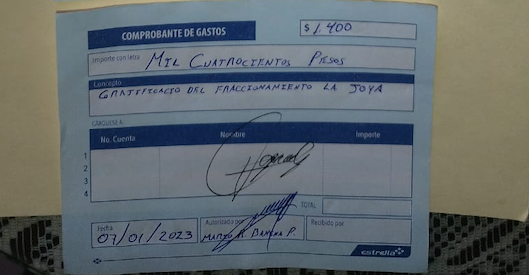 COMPROBANTE DE GASTOS
$1,400
Importe con letra
MIL CUATROCIENTOS PESOS
Concepto
GRATIFICACIO DEL FRACCIONAMIENTO LA JOYA
CARGUESE A:
No. Cuenta Nombre Importe
1
2
3
4
TOTAL
Fecha
07/01/2023
Autorizado por
Recibido por
estrella